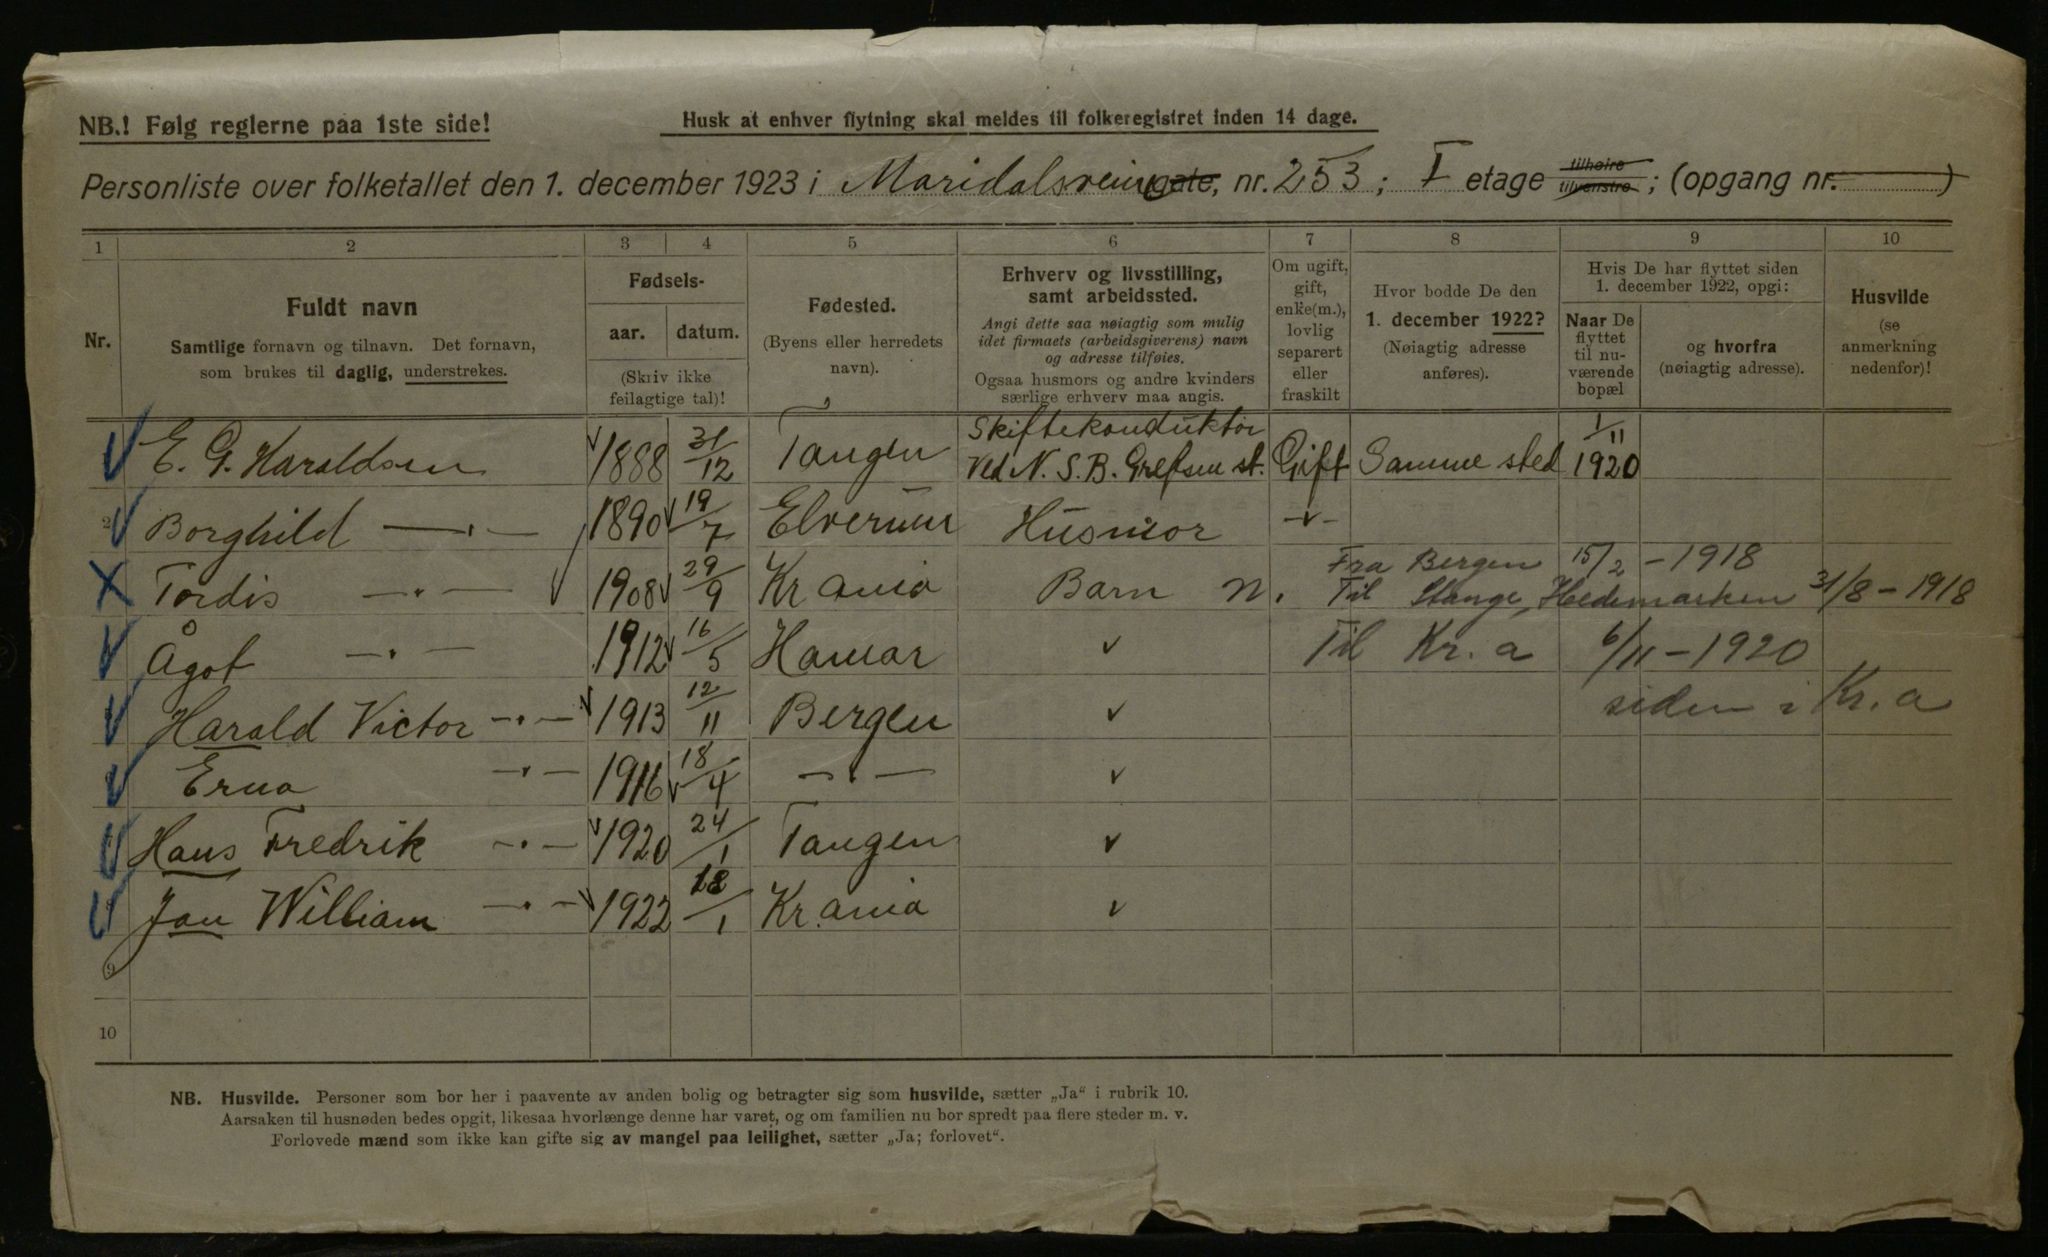 NB.! Følg reglerne paa 1ste side!
Husk at enhver flytning skal meldes til folkeregistret inden 14 dage.
Personliste over folketallet den 1. december 1923 i Maridalsveien gate, nr. 253; I etage tilhøire tilvenstre; (opgang nr. )
1 2 3 4 5 6 7 8 9 10
Nr.
Fuldt navn
Samtlige fornavn og tilnavn. Det fornavn,
som brukes til daglig, understrekes.
Fødsels-
aar. datum.
(Skriv ikke
feilagtige tal)!
Fødested.
(Byens eller herredets
navn).
Erhverv og livsstilling,
samt arbeidssted.
Angi dette saa nøiagtig som mulig
idet firmaets (arbeidsgiverens) navn
og adresse tilføies.
Ogsaa husmors og andre kvinders
særlige erhverv maa angis.
Om ugift,
gift,
enke(m.),
lovlig
separert
eller
fraskilt
Hvor bodde De den
1. december 1922?
(Nøiagtig adresse
anføres).
Hvis De har flyttet siden
1. december 1922, opgi:
Naar De
flyttet
til nu-
værende
bopæl
og hvorfra
(nøiagtig adresse).
Husvilde
(se
anmerkning
nedenfor)!
E. G. Haraldsen 1888 31/12 Tangen Skiftekonduktør Ved N. S. B. Grefsen st. Gift Samme sted 1/11 1920
2 Borghild —"— 1890 19/7 Elverum Husmor —"—
Tordis —"— 1908 29/9 Kr ania Barn n. Fra Bergen 15/2 - 1918
Til Stange, Hedemarken 31/8 - 1918
Ågot —"— 1912 16/5 Hamar v Til Kr. a 6/11 - 1920
Harald Victor —"— 1913 12/11 Bergen v siden i Kr. a
Erna —"— 1916 18/4 —"— v
Hans Fredrik —"— 1920 24/1 Tangen v
Jan William —"— 1922 /1 Kr.ania v
9
10
NB. Husvilde. Personer som bor her i paavente av anden bolig og betragter sig som husvilde, sætter „Ja“ i rubrik 10.
Aarsaken til husnøden bedes opgit, likesaa hvorlænge denne har varet, og om familien nu bor spredt paa flere steder m. v.
Forlovede mænd som ikke kan gifte sig av mangel paa leilighet, sætter „Ja; forlovet“.